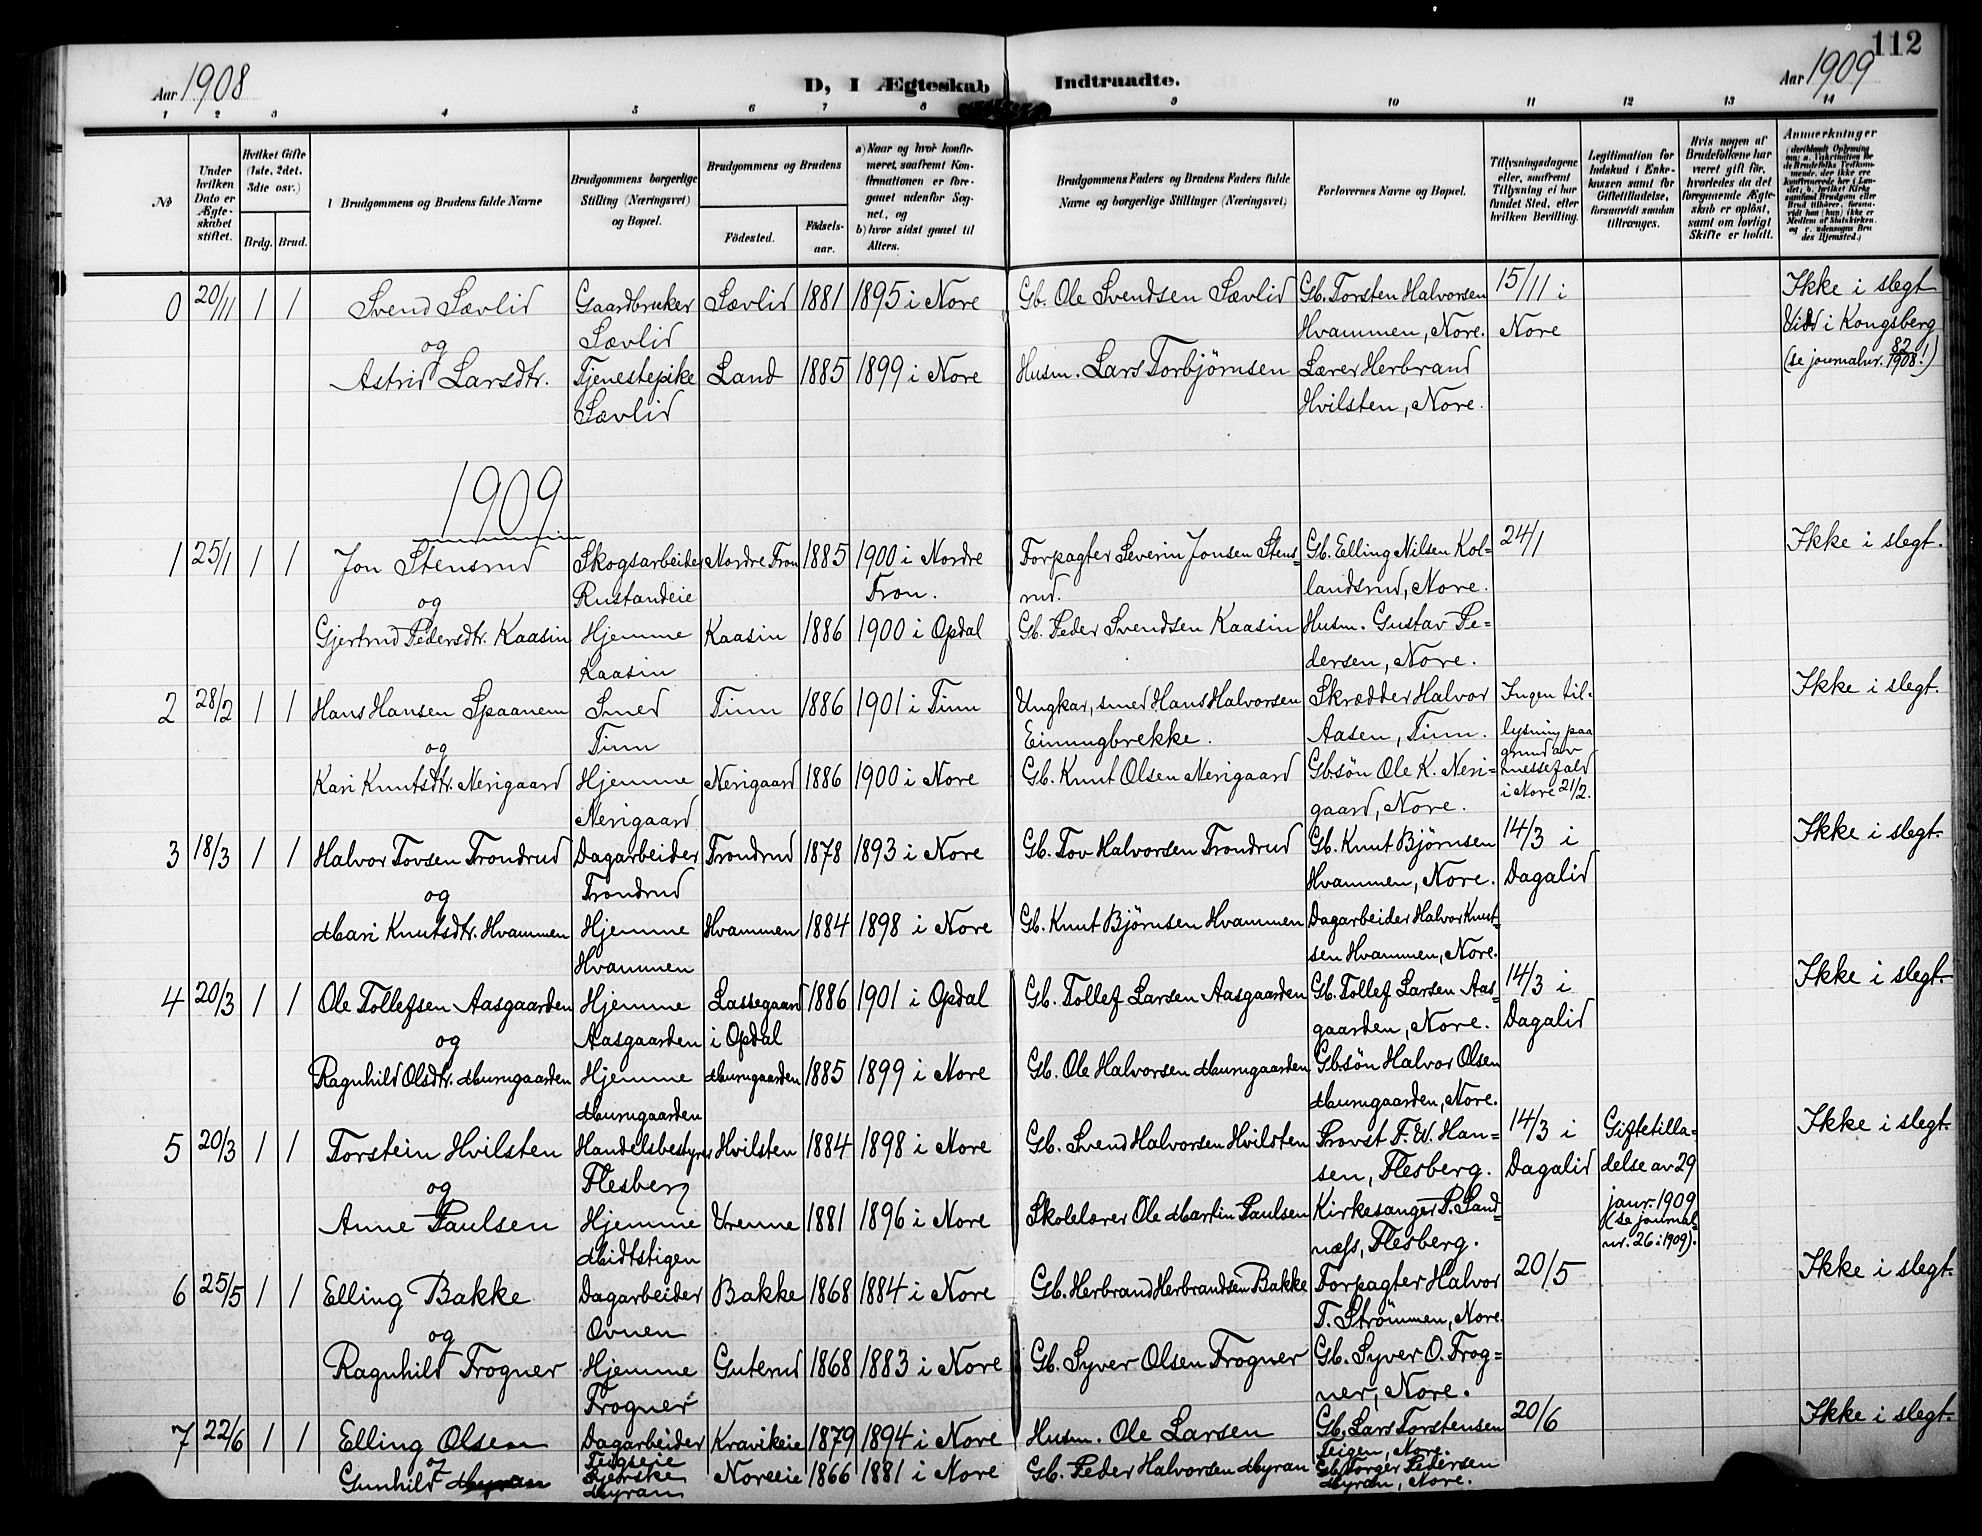 112
Aar 1908
D, I Ægteskab Indtraadte.
Aar 1909
1 2 3 4 5 6 7 8 9 10 11 12 13 14
No
Under hvilken Dato er Ægteskabet stiftet.
Hvilket Gifte (1ste, 2det, 3die osv.)
Brdg. Brud.
Brudgommens og Brudens fulde Navne
Brudgommens borgerlige Stilling (Næringsvei) og Bopæl.
Brudgommens og Brudens
Födested.
Födselsaar.
a) Naar og hvor konfirmeret, saafremt Konfirmationen er foregaaet udenfor Sognet, og
b) hvor sidst gaaet til Alters.
Brudgommens Faders og Brudens Faders fulde Navne og borgerlige Stillinger (Næringsvei)
Forlovernes Navne og Bopæl.
Tillysningsdagene eller, saafremt Tillysning ei har fundet Sted, efter hvilken Bevilling.
Legitimation for Indskud i Enkekassen samt for Giftetilladelse, forsaavidt saadan tiltrænges.
Hvis nogen af Brudefolkene har været gift för, hvorledes da det foregaaende Ægteskab er oplöst, samt om lovligt Skifte er holdt.
Anmerkninger
0 20/11 1 1 Svend Sævlid Gaardbruker Sævlid 1881 1895 i Nore Gb. Ole Svendsen Sævlid Gb. Torsten Halvorsen 15/11 i Ikke i slegt
og Sævlid Hvammen, Nore. Nore Viet i Kongsberg
Astrid Larsdtr. Tjenestepike Land 1885 1899 i Nore Husm. Lars Torbjørnsen Lærer Herbrand (se journalnr. 82/1908!)
Sævlid Hvilsten, Nore.
1909
1 25/1 1 1 Jon Stensrud Skogsarbeider Nordre Fron 1885 1900 i Nordre Forpagter Severin Jonsen Stens- Gb. Elling Nilsen Kol- 24/1 Ikke i slegt.
og Rustandeie Fron. rud. landsrud, Nore.
Gjertrud Pedersdtr. Kaasin Hjemme Kaasin 1886 1900 i Opdal Gb. Peder Svendsen Kaasin Husm. Gustav Pe-
Kaasin dersen, Nore.
2 28/2 1 1 Hans Hansen Spaanem Smed Tinn 1886 1901 i Tinn Ungkar, smed Hans Halvorsen Skrædder Halvor Ingen til- Ikke i slegt.
og Tinn Einungbrekke. Aasen, Tinn. lysning paa grund av
Kari Knutsdtr. Nerigaard Hjemme Nerigaard 1886 1900 i Nore Gb. Knut Olsen Nerigaard Gbsøn Ole K. Neri- messefald
Nerigaard gaard, Nore. i Nore 21/2.
3 18/3 1 1 Halvor Tovsen Trondrud Dagarbeider Trondrud 1878 1893 i Nore Gb. Tov Halvorsen Trondrud Gb. Knut Bjørnsen 14/3 i Ikke i slegt.
og Trondrud Hvammen, Nore. Dagalid
Mari Knutsdtr. Hvammen Hjemme Hvammen 1884 1898 i Nore Gb. Knut Bjørnsen Hvammen Dagarbeider Halvor Knut-
Hvammen sen Hvammen, Nore.
4 20/3 1 1 Ole Tollefsen Aasgaarden Hjemme Lassegaard 1886 1901 i Opdal Gb. Tollef Larsen Aasgaarden Gb. Tollef Larsen Aas- 14/3 i Ikke i slegt.
og Aasgaarden i Opdal gaarden, Nore. Dagalid
Ragnhild Olsdtr. Murugaarden Hjemme Murugaarden 1885 1899 i Nore Gb. Ole Halvorsen Murugaarden Gbsøn Halvor Olsen
Murugaarden Murugaarden, Nore.
5 20/3 1 1 Torstein Hvilsten Handelsbestyrer Hvilsten 1884 1898 i Nore Gb. Svend Halvorsen Hvilsten Provst F. W. Han- 14/3 i Giftetilla- Ikke i slegt.
og Flesberg sen, Flesberg. Dagalid delse av 29
Anne Paulsen Hjemme Vrenne 1881 1896 i Nore Skolelærer Ole Martin Paulsen Kirkesanger P. Sand- janr. 1909
Midtstigen næss, Flesberg. (se journal-nr. 26 i 1909).
6 25/5 1 1 Elling Bakke Dagarbeider Bakke 1868 1884 i Nore Gb. Herbrand Herbrandsen Bakke Forpagter Halvor 20/5 Ikke i slegt.
og Ovnen T. Strömmen, Nore.
Ragnhild Frogner Hjemme Guterud 1868 1883 i Nore Gb. Syver Olsen Frogner Gb. Syver O. Frog-
Frogner ner, Nore.
7 22/6 1 1 Elling Olsen Dagarbeider Kravikeie 1879 1894 i Nore Husm. Ole Larsen Gb. Lars Torstensen 20/6 Ikke i slegt.
og Teigseie Teigen, Nore.
Gunhild Myran Syerske Noreeie 1866 1881 i Nore Gb. Peder Halvorsen Myran Gb. Torger Pedersen
Myran Myran, Nore.